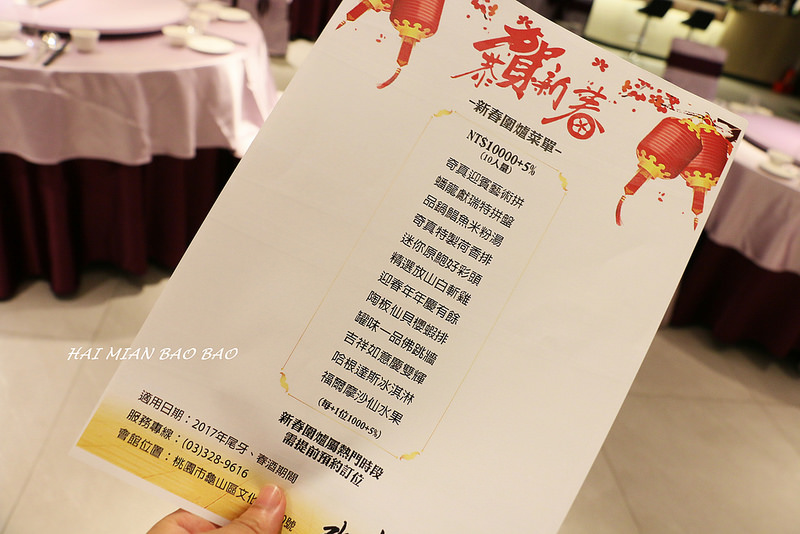 恭賀新春
-新春圍爐菜單-
NT$10000+5%
(10人量)
奇真迎賓藝術拼
蟠龍獻瑞特拼盤
品鍋鯧魚米粉湯
奇真特製荷香排
迷你原鮑好彩頭
精選放山白斬雞
迎春年年慶有餘
陶板仙貝櫻蝦排
罐味一品佛跳牆
吉祥如意慶雙輝
哈根達斯冰淇淋
福爾摩沙仙水果
(每+1位1000+5%)
新春圍爐屬熱門時段
需提前預約訂位
適用日期：2017年尾牙、春酒期間
服務專線：(03)328-9616
會館位置：桃園市龜山區文化
號
HAI MIAN BAO BAO